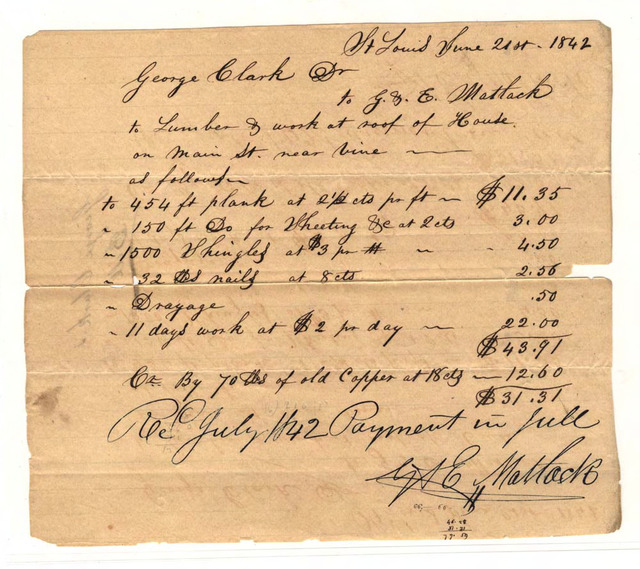 St Louis June 21st. 1842
George Clark Dr
to G. & E. Matlack
to Lumber & work at roof of House.
on Main St. near Vine
as follows
to 454 ft plank at 2½ cts pr ft " $11.35
" 150 ft Do for Sheeting &c at 2 cts 3.00
" 1500 Shingles at $3 pr M " " 4.50
" 32 lbs nails at 8 cts 2.56
" Drayage .50
" 11 days work at $2 pr day 22.00
$43.91
Cr By 70 lbs of old Copper at 18 cts 12.60
$31.31
Recd July 1842 Payment in full
G & E Matlack